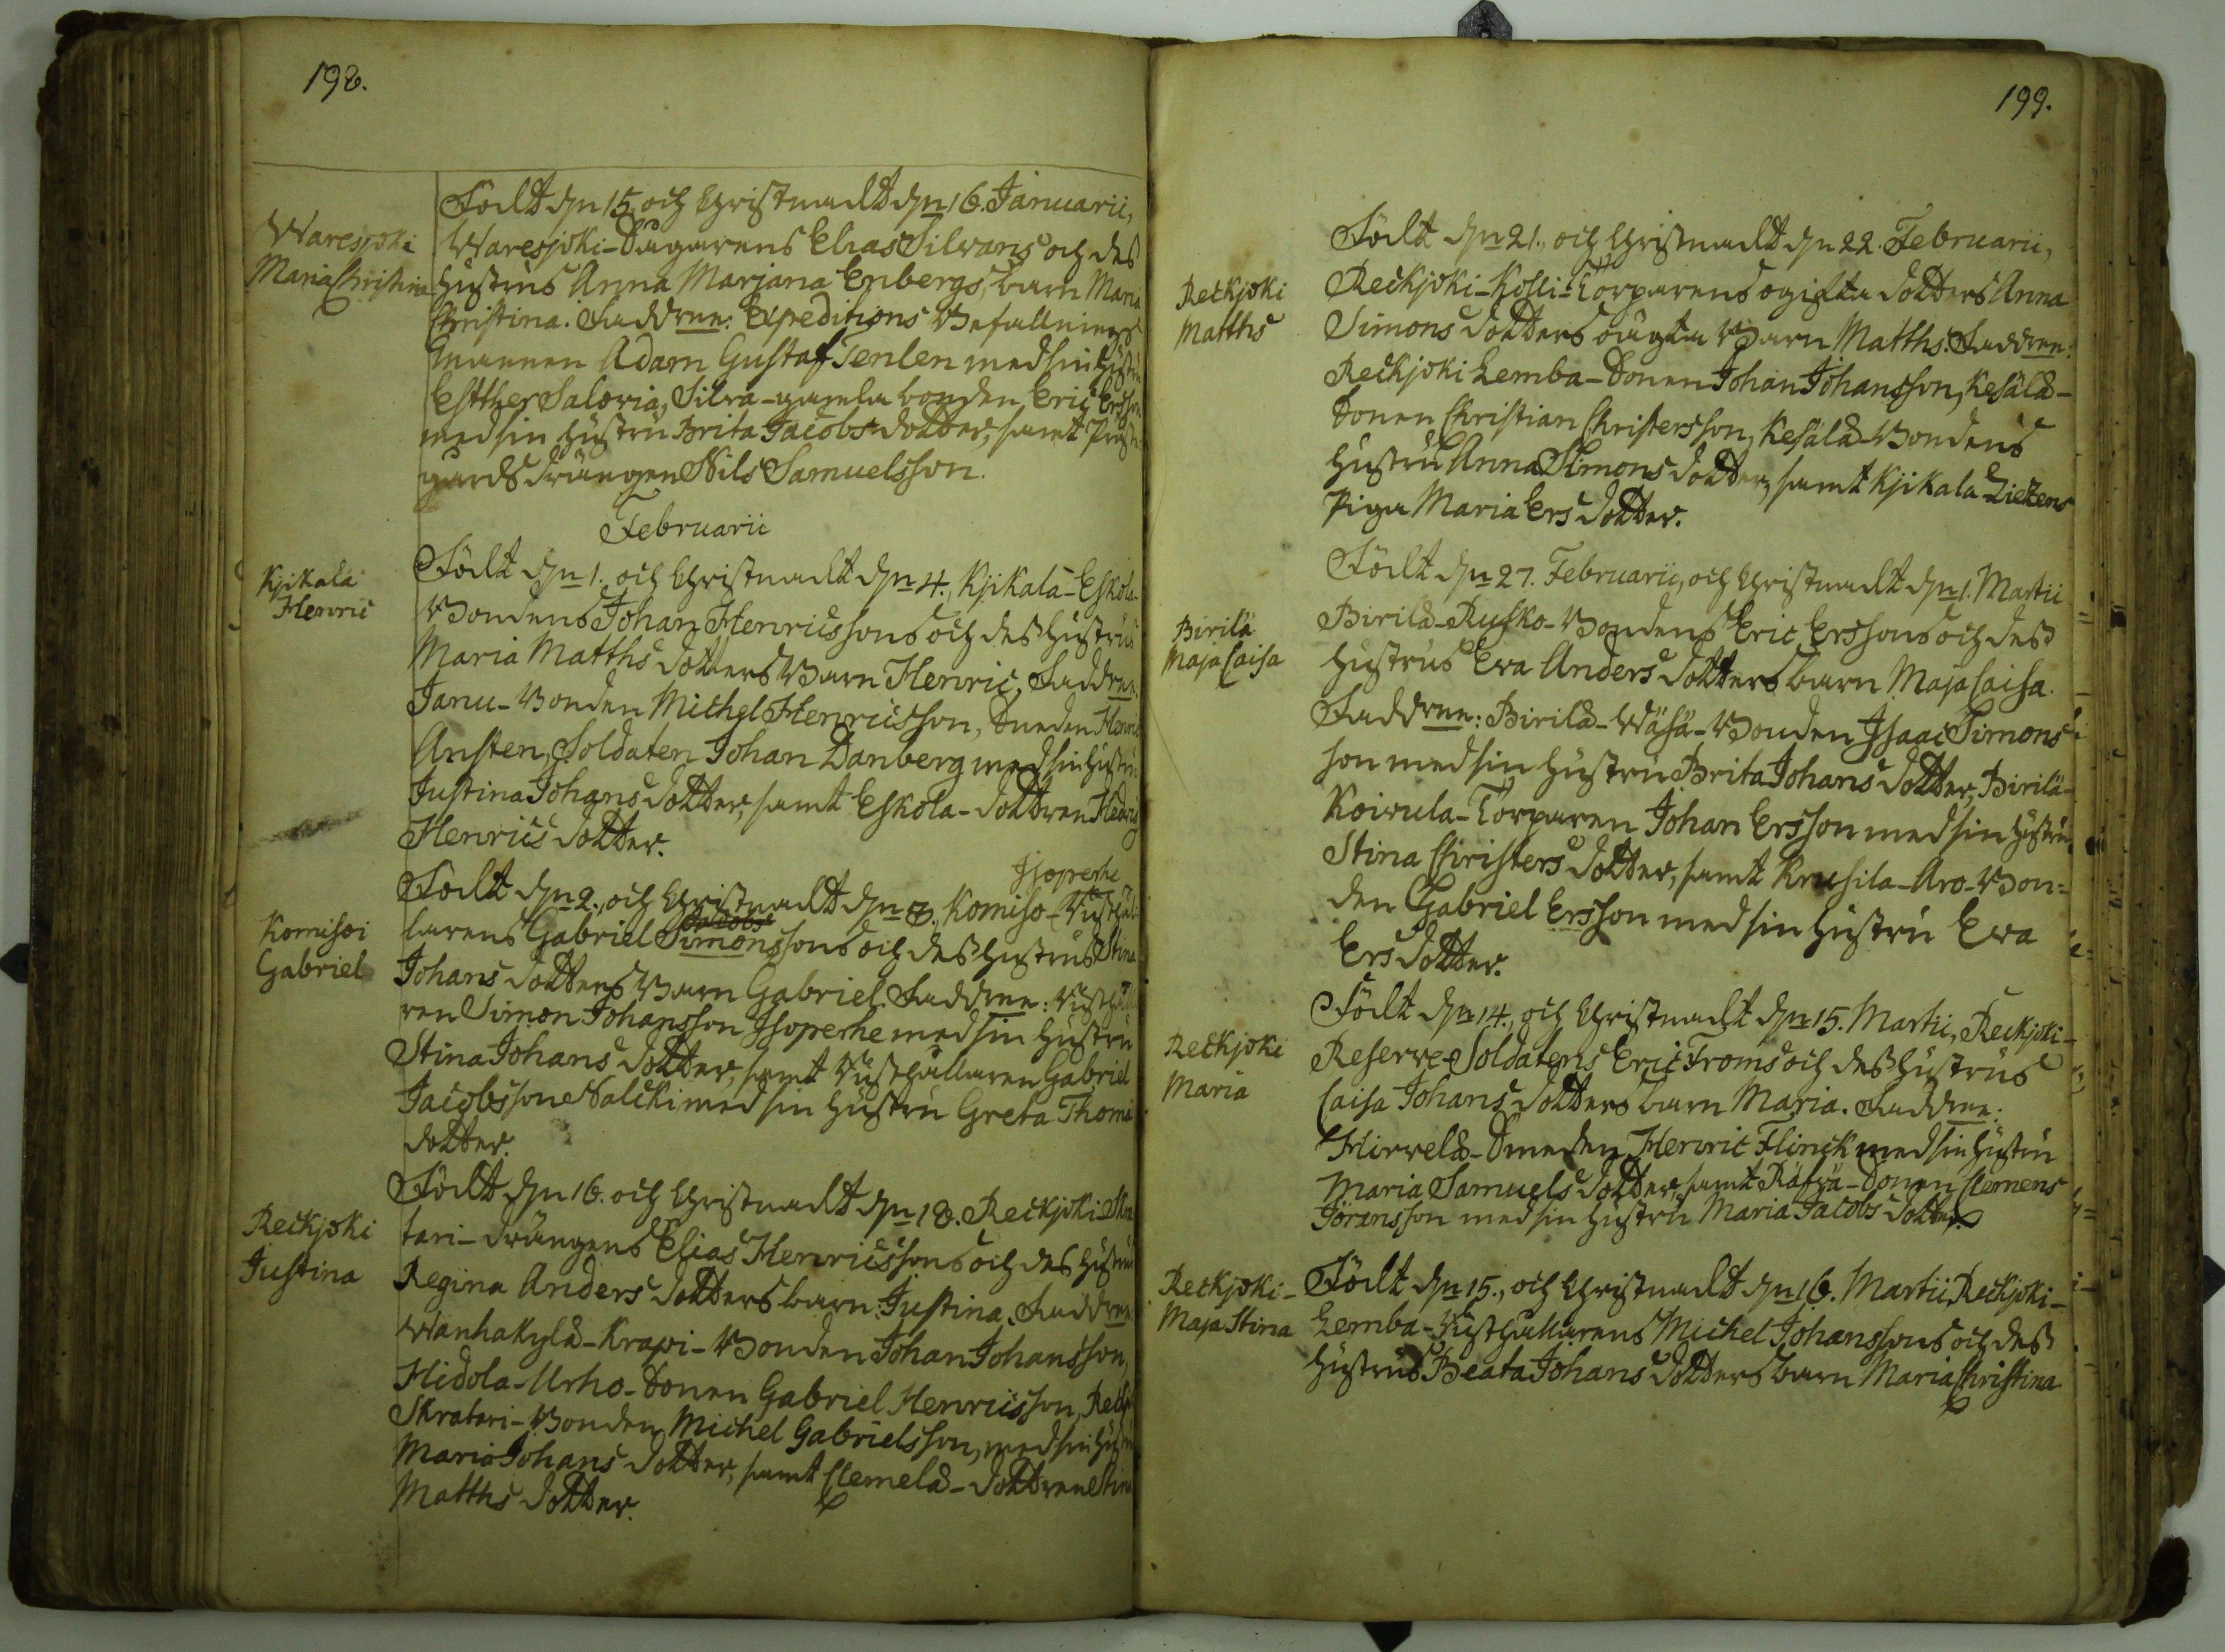 198.
Född dn 15. och Christnadt dn 16. Januarii,
Waresjoki
Waresjoki-Sågarens Elias Silvans och des
Maria Christina
hustrus Anna Marjana Enbergs, barn Maria
Christina. Faddrne: Expeditions Befallnings
mannen Adam Gustaf Tenlen med sin hustru
Esther Saloria, Silva-gamla bonden Eric Ersson
med sin hustru Brita Jacobs dotter, samt Präst-
gårds drängen Nils Samuelsson.
Februarii
Kjikala
Henric
Född dn 1. och Christnadt dn 4. Kjikala-Eskola-
Bondens Johan Henricssons och deß hustrus
Maria Matths dotters Barn Henric, Faddrne.
Janu-Bonden Michel Henricsson, Smeden Henric
Ansten, Soldaten Johan Danberg med sin hustru
Justina Johans dotter, samt Eskola-dottren Hedvig
Henrics dotter.
Isoperhe
Komisoi
Gabriel
Född dn 2., och Christnadt dn 8. Komiso-Rusthål-
larens Gabriel Simonssons och deß hustrus Stina
Johans dotters Barn Gabriel. Faddrne: Rusthålla
ren Simon Johansson Isoperhe med sin hustru
Stina Johans dotter, samt Rusthållaren Gabriel
Jacobsson Nalcki med sin hustru Greta Thomæ
dotter.
Reckjoki
Justina
Född dn 16. och Christnadt dn 18. Reckjoki Skra
tari-drängens Elias Henricssons och des hustrus
Regina Anders dotters barn: Justina. Faddrne
Wanhakylä-Krapi-Bonden Johan Johansson,
Hidola-Urho-Sonen Gabriel Henricsson, Reckj
Skratari-Bonden Michel Gabrielsson, med sin hustru
Maria Johans dotter, samt Clemelä-dottren Stina
Matths dotter.
199.
Reckjoki
Matths
Född dn 21., och Christnadt dn 22. Februarii,
Reckjoki-Kolli-Torparens ogifta dotters Anna
Simons dotters oägta Barn Matths. Faddrne:
Reckjoki Lemba-Sonen Johan Johansson, Kesälä-
Sonen Christian Christersson, Kesälä Bondens
hustru Anna Simons dotter, samt Kjikala
Piga Maria Ers dotter.
Birilä
Maja Caisa
Född dn 27. Februarii, och Christnadt dn 1. Martii
Birilä-Rusko-Bondens Eric Erssons och deß
hustrus Eva Anders dotters barn Maja Caisa.
Faddrne: Birilä-Wäsä-Bonden Isaac Simons
son med sin hustru Brita Johans dotter, Birilä-
Koivula-Torparen Johan Ersson med sin hustru
Stina Christers dotter, samt Knusila-Aro-Bon=
den Gabriel Ersson med sin hustru Eva
Ers dotter.
Reckjoki
Maria
Född dn 14., och Christnadt dn 15. Martii, Reckjoki-
Reserve-Soldatens Eric Froms och deß hustrus
Caisa Johans dotters barn Maria. Faddrne:
Hirvelä-Smeden Henric Flinck med sin hustru
Maria Samuels dotter, samt Räfvä-Sonen Clemens
Jöransson med sin hustru Maria Jacobs dotter.
Reckjoki-
Maja Stina
Född dn 15., och Christnadt dn 16. Martii, Reckjoki-
Lemba-Rusthållarens Michel Johanssons och deß
hustrus Beata Johans dotters barn Maria Christina